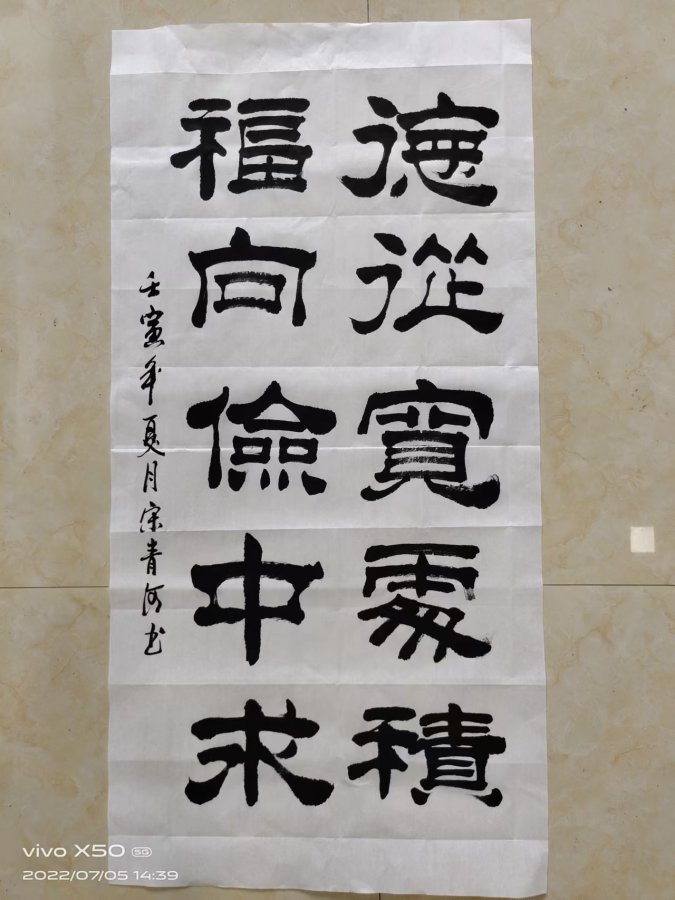 德從寬處積
福向儉中求
壬寅年夏月宗青河书
vivo X50 5G
2022/07/05 14:39